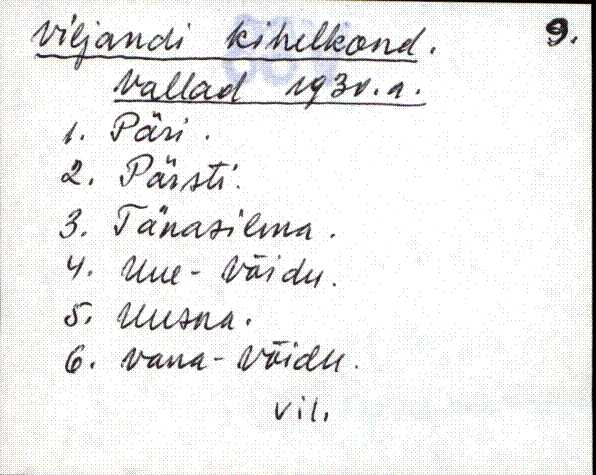 Viljandi kihelkond. 9.
Vallad 1930.a.
1. Päri.
2. Pärsti.
3. Tänasilma.
4. Uue-Võidu.
5. Uusna.
6. Vana-Võidu.
Vil.